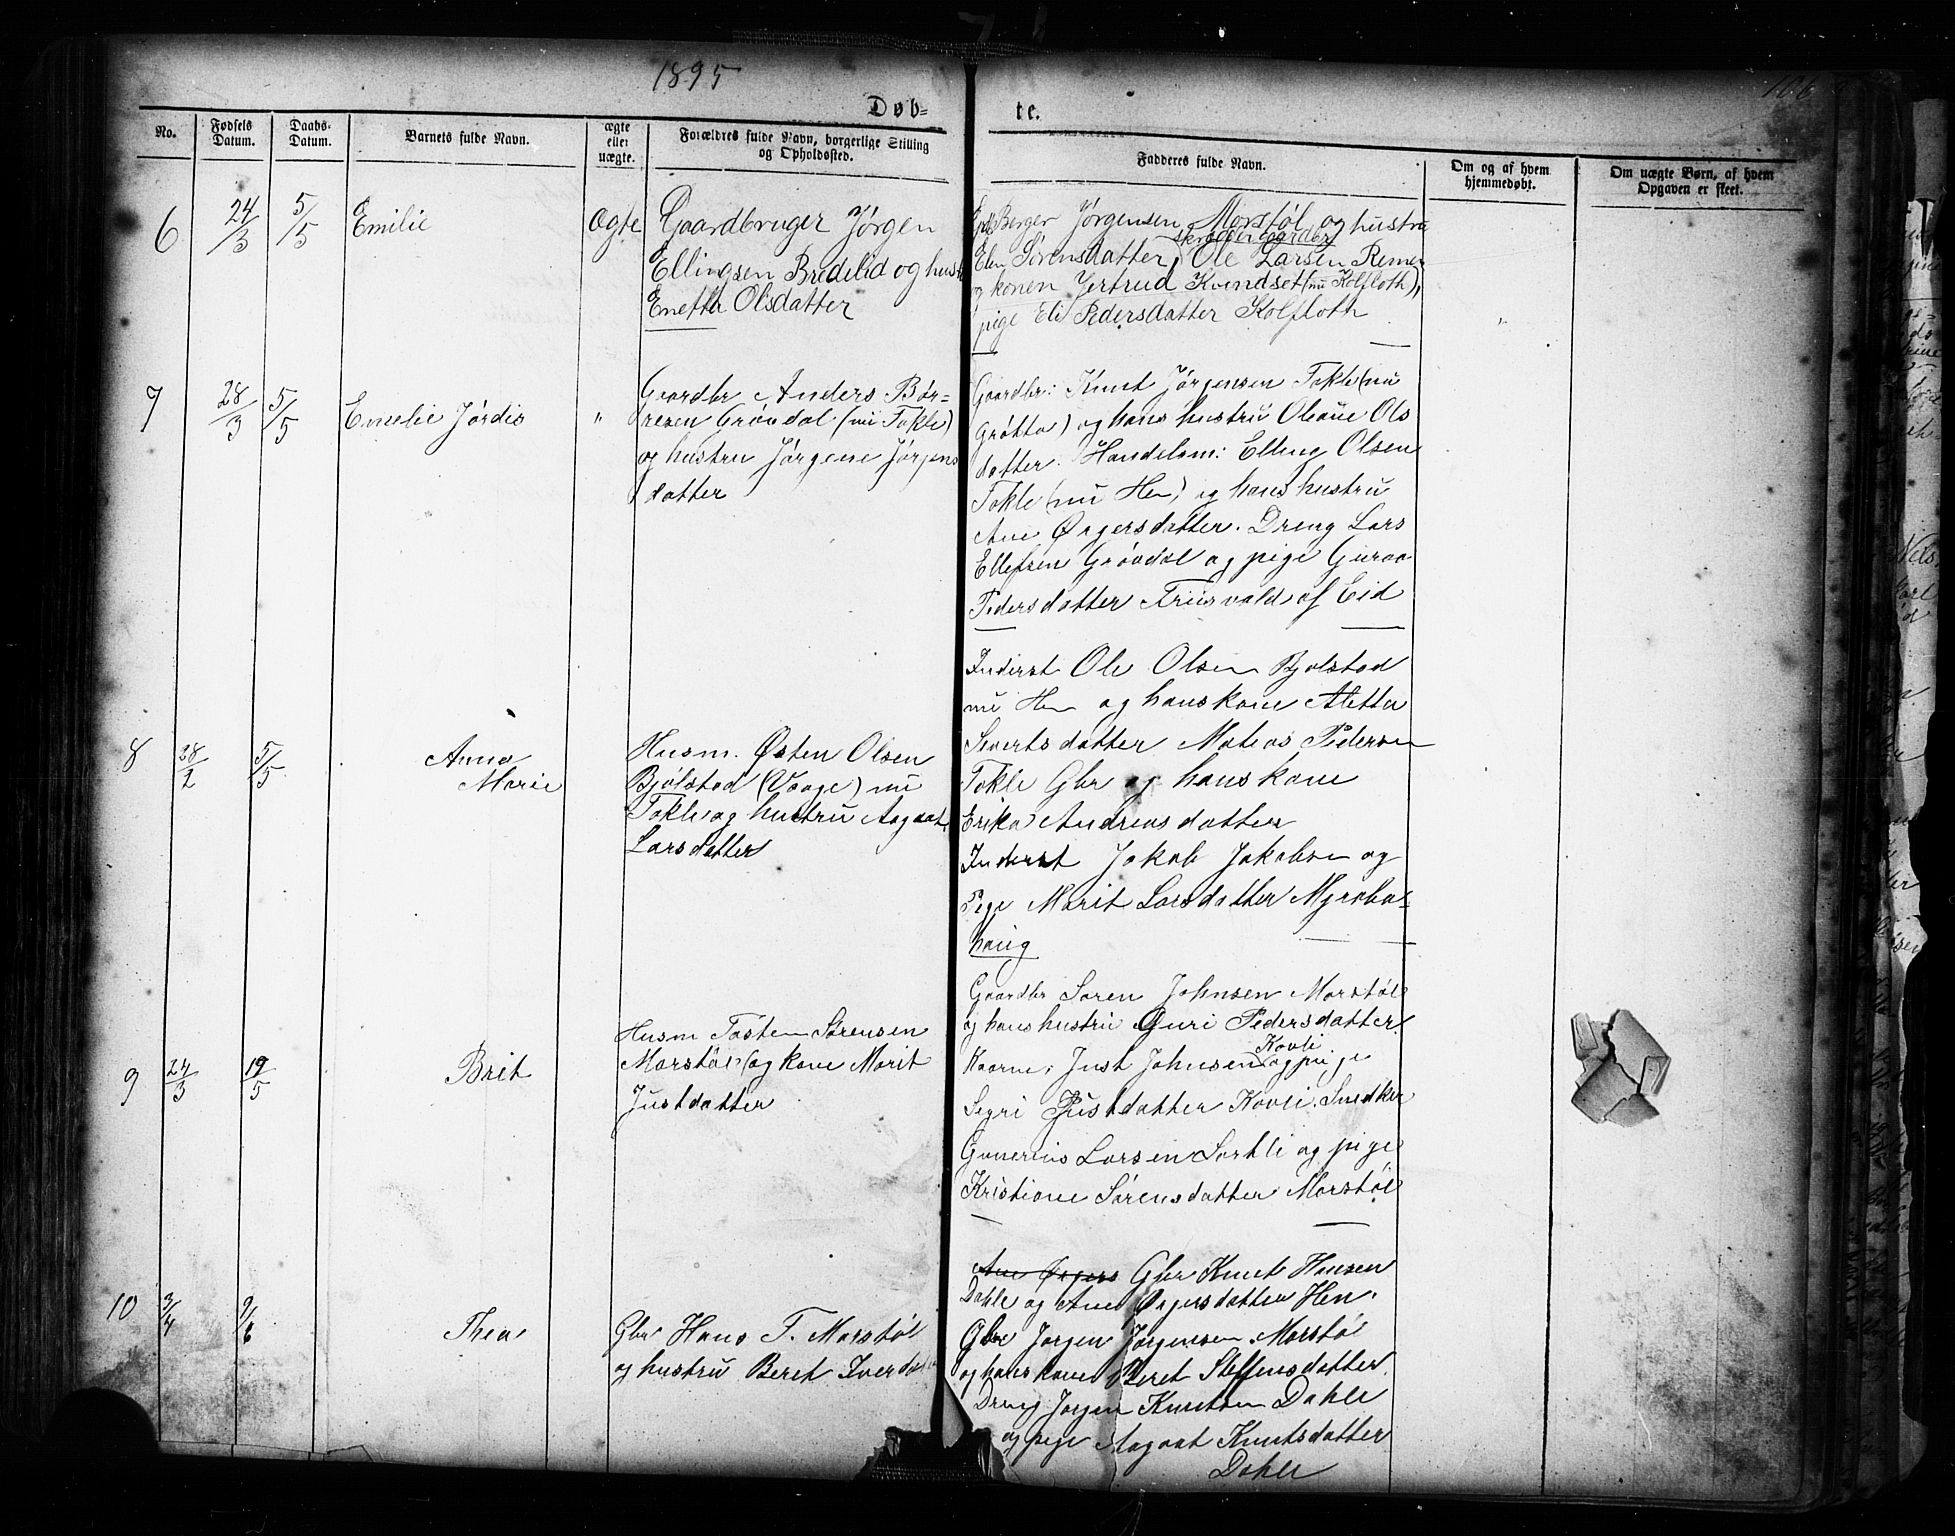 1895
106
Døb-
te.
No.
Fødsels Datum.
Daabs- Datum.
Barnets fulde Navn.
ægte eller uægte.
Forældres fulde Navn, borgerlige Stilling og Opholdssted.
Fadderes fulde Navn.
Om og af hvem hjemmedøbt.
Om uægte Børn, af hvem Opgaven er skeet.
6
24/3
5/5
Emilie
Ægte
Gaardbruger Jørgen
Ellingsen Bredelid og hustr
Enetta Olsdatter
Berger Jørgensen Morstøl og hustru
Elen Sørensdatter, Ole Larsen Remen
og konen Gertrud Kvindset (nu Kolfloth),
pige Eli Pedersdatter Kolfloth
7
28/3
5/5
Emelie Jørdis
"
Gaardbr Anders Bør-
resen Grøvdal (nu Tokle)
og hustru Jørgene Jørgens
datter
Gaardbr: Knut Jørgensen Tokle (nu
Grøtta) og hans hustru Oleane Ols
datter. Handelsm: Elling Olsen
Tokle (nu Hen) og hans hustru
Ane Ørgersdatter. Dreng Lars
Ellefsen Grøvdal og pige Guroo
Pedersdatter Friisvold af Eid
8
28/2
5/5
Anna
Marie
Husm. Østen Olsen
Bjølstad (Vaage) nu
Tokle og hustru Aagaat
Larsdatter
Inderst Ole Olsen Bjølstad
nu Hen og hans kone Aletta
Sivertsdatter Mateas Pedersen
Tokle Gbr og hans kone
Erika Andreasdatter
Inderst Jakob Jakobsen og
Pige Marit Larsdatter Myrabø-
haug
9
24/3
19/5
Brit
Husm Tosten Sørensen
Morstøl og kone Marit
Justdatter
Gaardbr Søren Johnsen Morstøl
og hans hustru Guri Pedersdatter.
Kaarm. Just Johnsen Kovli og pige
Segri Justdatter Kovli. Snedker
Gunerius Larsen Sortli og pige
Kristiane Sørensdatter Morstøl
10
3/4
9/6
Thea
Gbr Hans T. Morstøl
og hustru Beret Iversdatter
Ane Ørgers Gbr Knut Hansen
Dahle og Ane Ørgersdatter Hen.
Gbr Jørgen Jørgensen Morstøl
og hans kone Beret Steffensdatter
Dreng Jørgen Knutsen Dahle
og pige Aagaat Knutsdatter
Dahle